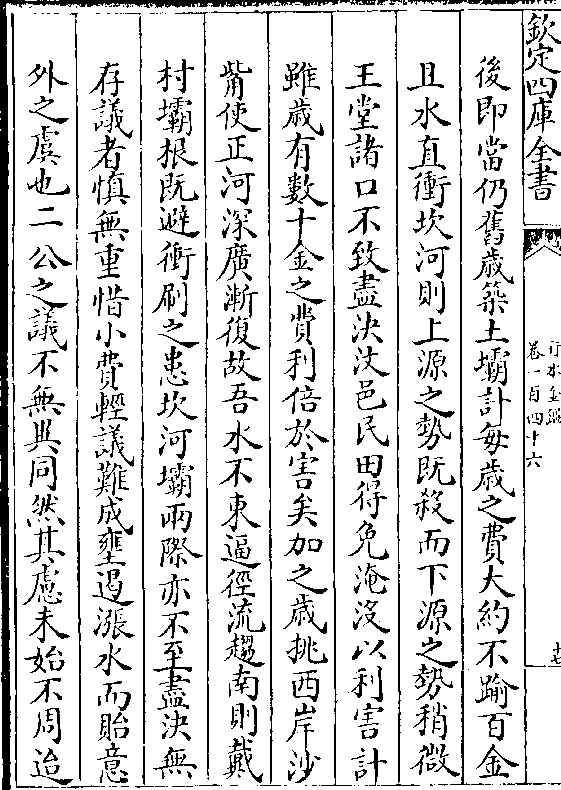 欽定四庫全書
行水金鑑
卷一百四十六
十七
後即當仍舊歲築土壩計每歲之費大約不踰百金
且水直衝坎河則上源之勢既殺而下源之勢稍微
王堂諸口不致盡決汶邑民田得免淹沒以利害計
雖歲有數十金之費利倍於害矣加之歲挑西岸沙
觜使正河深廣漸復故吾水不東逼徑流趨南則戴
村壩根既避衝刷之患坎河壩兩際亦不至盡決無
存議者慎無重惜小費輕議難成壅遏漲水而貽意
外之虞也二公之議不無異同然其慮未始不周迨